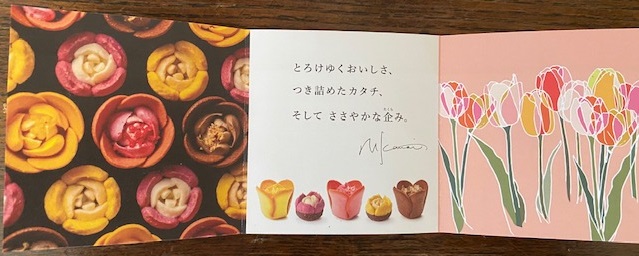 とろけゆくおいしさ、
つき詰めたカタチ、
そして ささやかな企み。